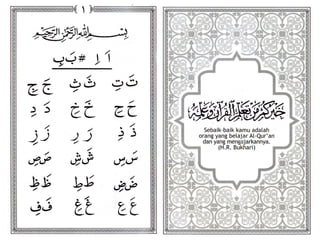 ١
بِسْمِ اللهِ الرَّحْمٰنِ الرَّحِيْمِ
اَ اِ # بَ بِ
تَ تِ ثَ ثِ جَ جِ
حَ حِ خَ خِ دَ دِ
ذَ ذِ رَ رِ زَ زِ
سَ سِ شَ شِ صَ صِ
ضَ ضِ طَ طِ ظَ ظِ
عَ عِ غَ غِ فَ فِ
خَيْرُكُمْ مَنْ تَعَلَّمَ الْقُرْآنَ وَعَلَّمَهُ
Sebaik-baik kamu adalah
orang yang belajar Al-Qur'an
dan yang mengajarkannya.
(H.R. Bukhari)